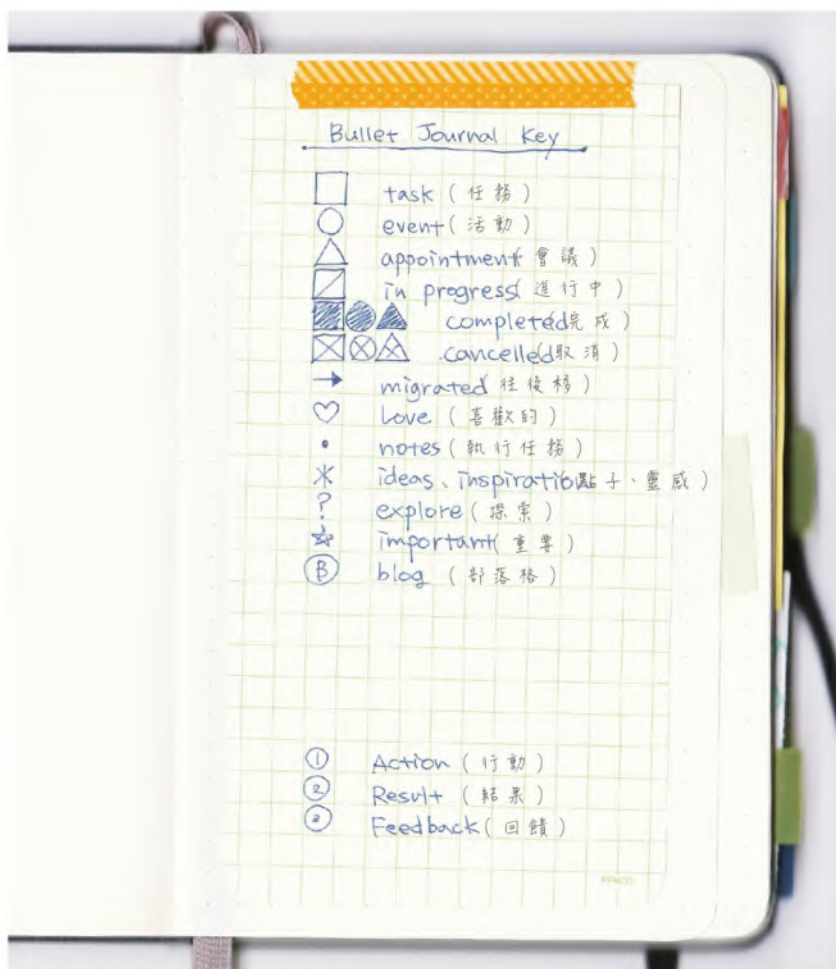 Bullet Journal Key
task (任務)
event (活動)
appointment (會議)
in progress (進行中)
completed (完成)
cancelled (取消)
→ migrated (往後移)
♡ Love (喜歡的)
• notes (執行任務)
ideas、inspiration (點子、靈感)
? explore (探索)
☆ important (重要)
Ⓑ blog (部落格)
① Action (行動)
② Result (結果)
③ Feedback (回饋)